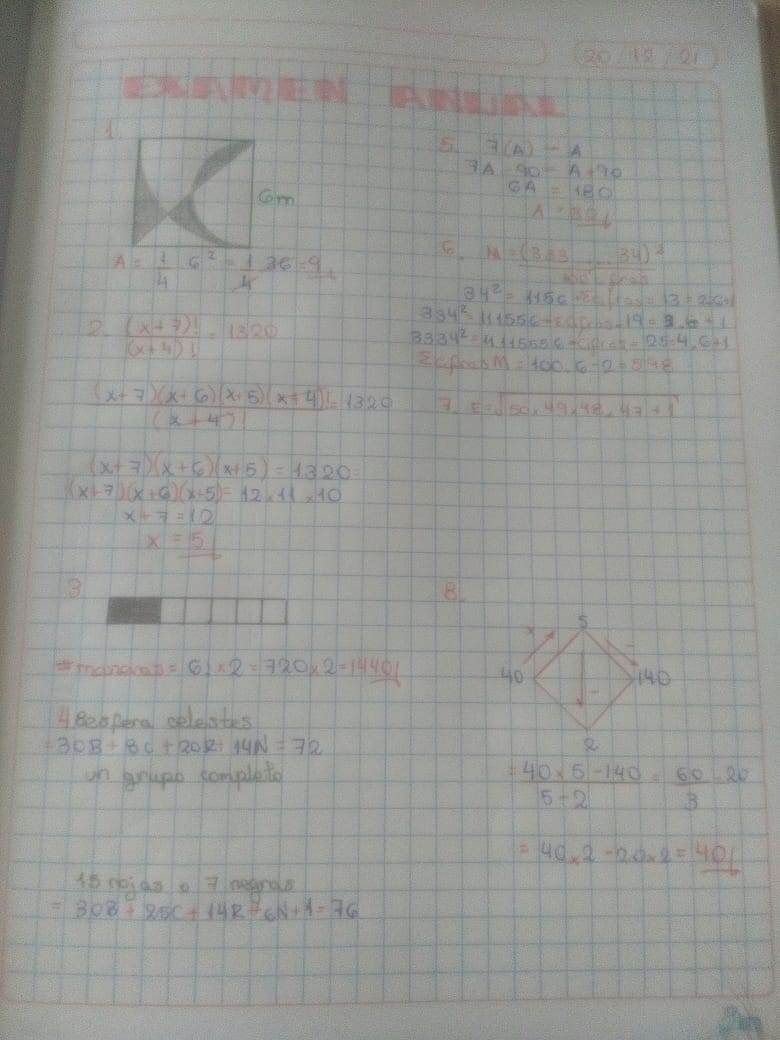 20/12/21
EXAMEN ANUAL
1.
6m
A = 1/4 6² = 1/4 36 = 9
2. (x+7)! / (x+4)! = 1320
(x+7)(x+6)(x+5)(x+4)! / (x+4)! = 1320
(x+7)(x+6)(x+5) = 1320
(x+7)(x+6)(x+5) = 12 x 11 x 10
x+7 = 12
x = 5
3
# maneras = 6! x 2 = 720 x 2 = 1440
4
celestes
= 30B + 8C + 20R + 14N = 72
un grupo completo
15 rojas o 7 negras
= 30B + 25C + 14R + 6N + 1 = 76
5. 7(A) - A
7A - 90 = A + 90
6A = 180
A = 30
6. M = (333 ... 34)²
100 cifras
34² = 1156 Σcifras = 13 = 2.6+1
334² = 111556 Σcifras = 19 = 3.6+1
3334² = 11115556 cifras = 25 = 4.6+1
Σcifras M = 100.6-2 = 598
7. E = √50x49x48x47+1
8.
5
40
140
2
= 40 x 5 - 140 / 5 - 2 = 60 / 3 = 20
= 40 x 2 - 20 x 2 = 40